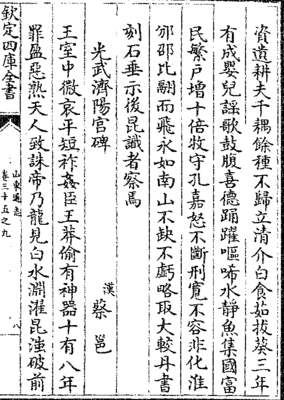 資遺耕夫千耦餘種不歸立清介白食茹拔葵三年
有成嬰兒謡歌鼓腹喜德踊躍嘔唏水靜魚集國富
民繁戶增十倍牧守孔嘉怒不斷刑寛不容非化淮
邠邵比翩而飛永如南山不缺不虧略取大較丹書
刻石垂示後昆識者察焉
光武濟陽宫碑
漢 蔡邕
王室中微哀平短祚姦臣王莽偷有神器十有八年
罪盈惡熟天人致誅帝乃龍見白水淵濯昆滍破前
欽定四庫全書
山東通志
卷三十五之九
八